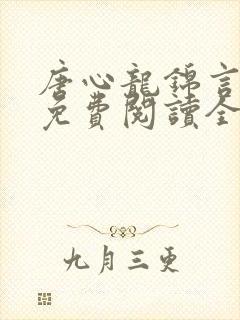 唐心龍錦言
免費閱讀全
九月三更